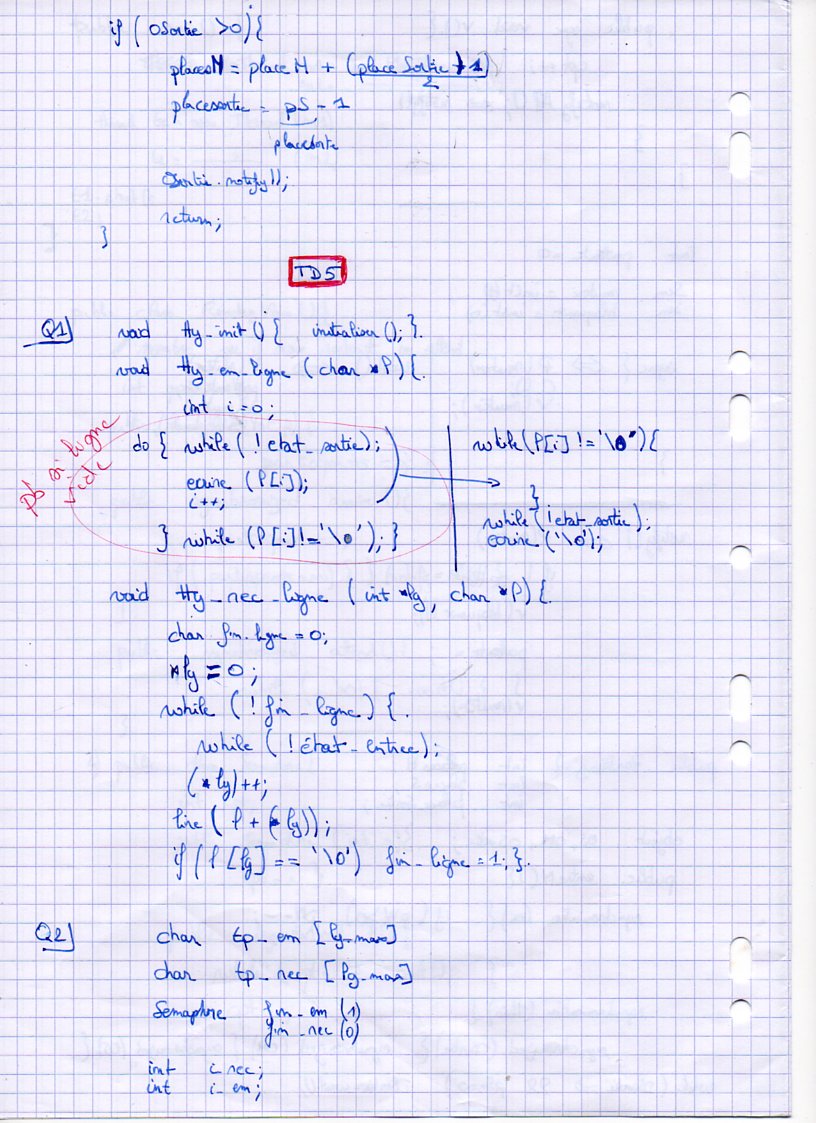 if ( OSortie >0){
placesM = place M + (place Sortie + 1)
2
placesortie = pS - 1
placesortie
OSortie.notify();
return;
}
TD5
Q1) void tty_init () { initialiser (); }.
void tty_em_ligne ( char *P) {.
int i=0;
Pb si ligne vide
do { while ( ! etat_sortie);
ecrire (P[i]);
i++;
} while (P[i]!='\0'); }
while (P[i] !='\0'){
}
while (!etat_sortie);
ecrire ('\0');
void tty_rec_ligne ( int *lg, char *P) {.
char fin_ligne = 0;
*lg = 0;
while ( ! fin_ligne) {.
while ( ! état_entree);
(*lg)++;
lire ( P + (*lg));
if ( P [lg] == '\0') fin_ligne = 1; }.
Q2) char tp_em [lg_max]
char tp_rec [lg_max]
Semaphore fin_em (1)
fin_rec (0)
int i_rec;
int i_em;